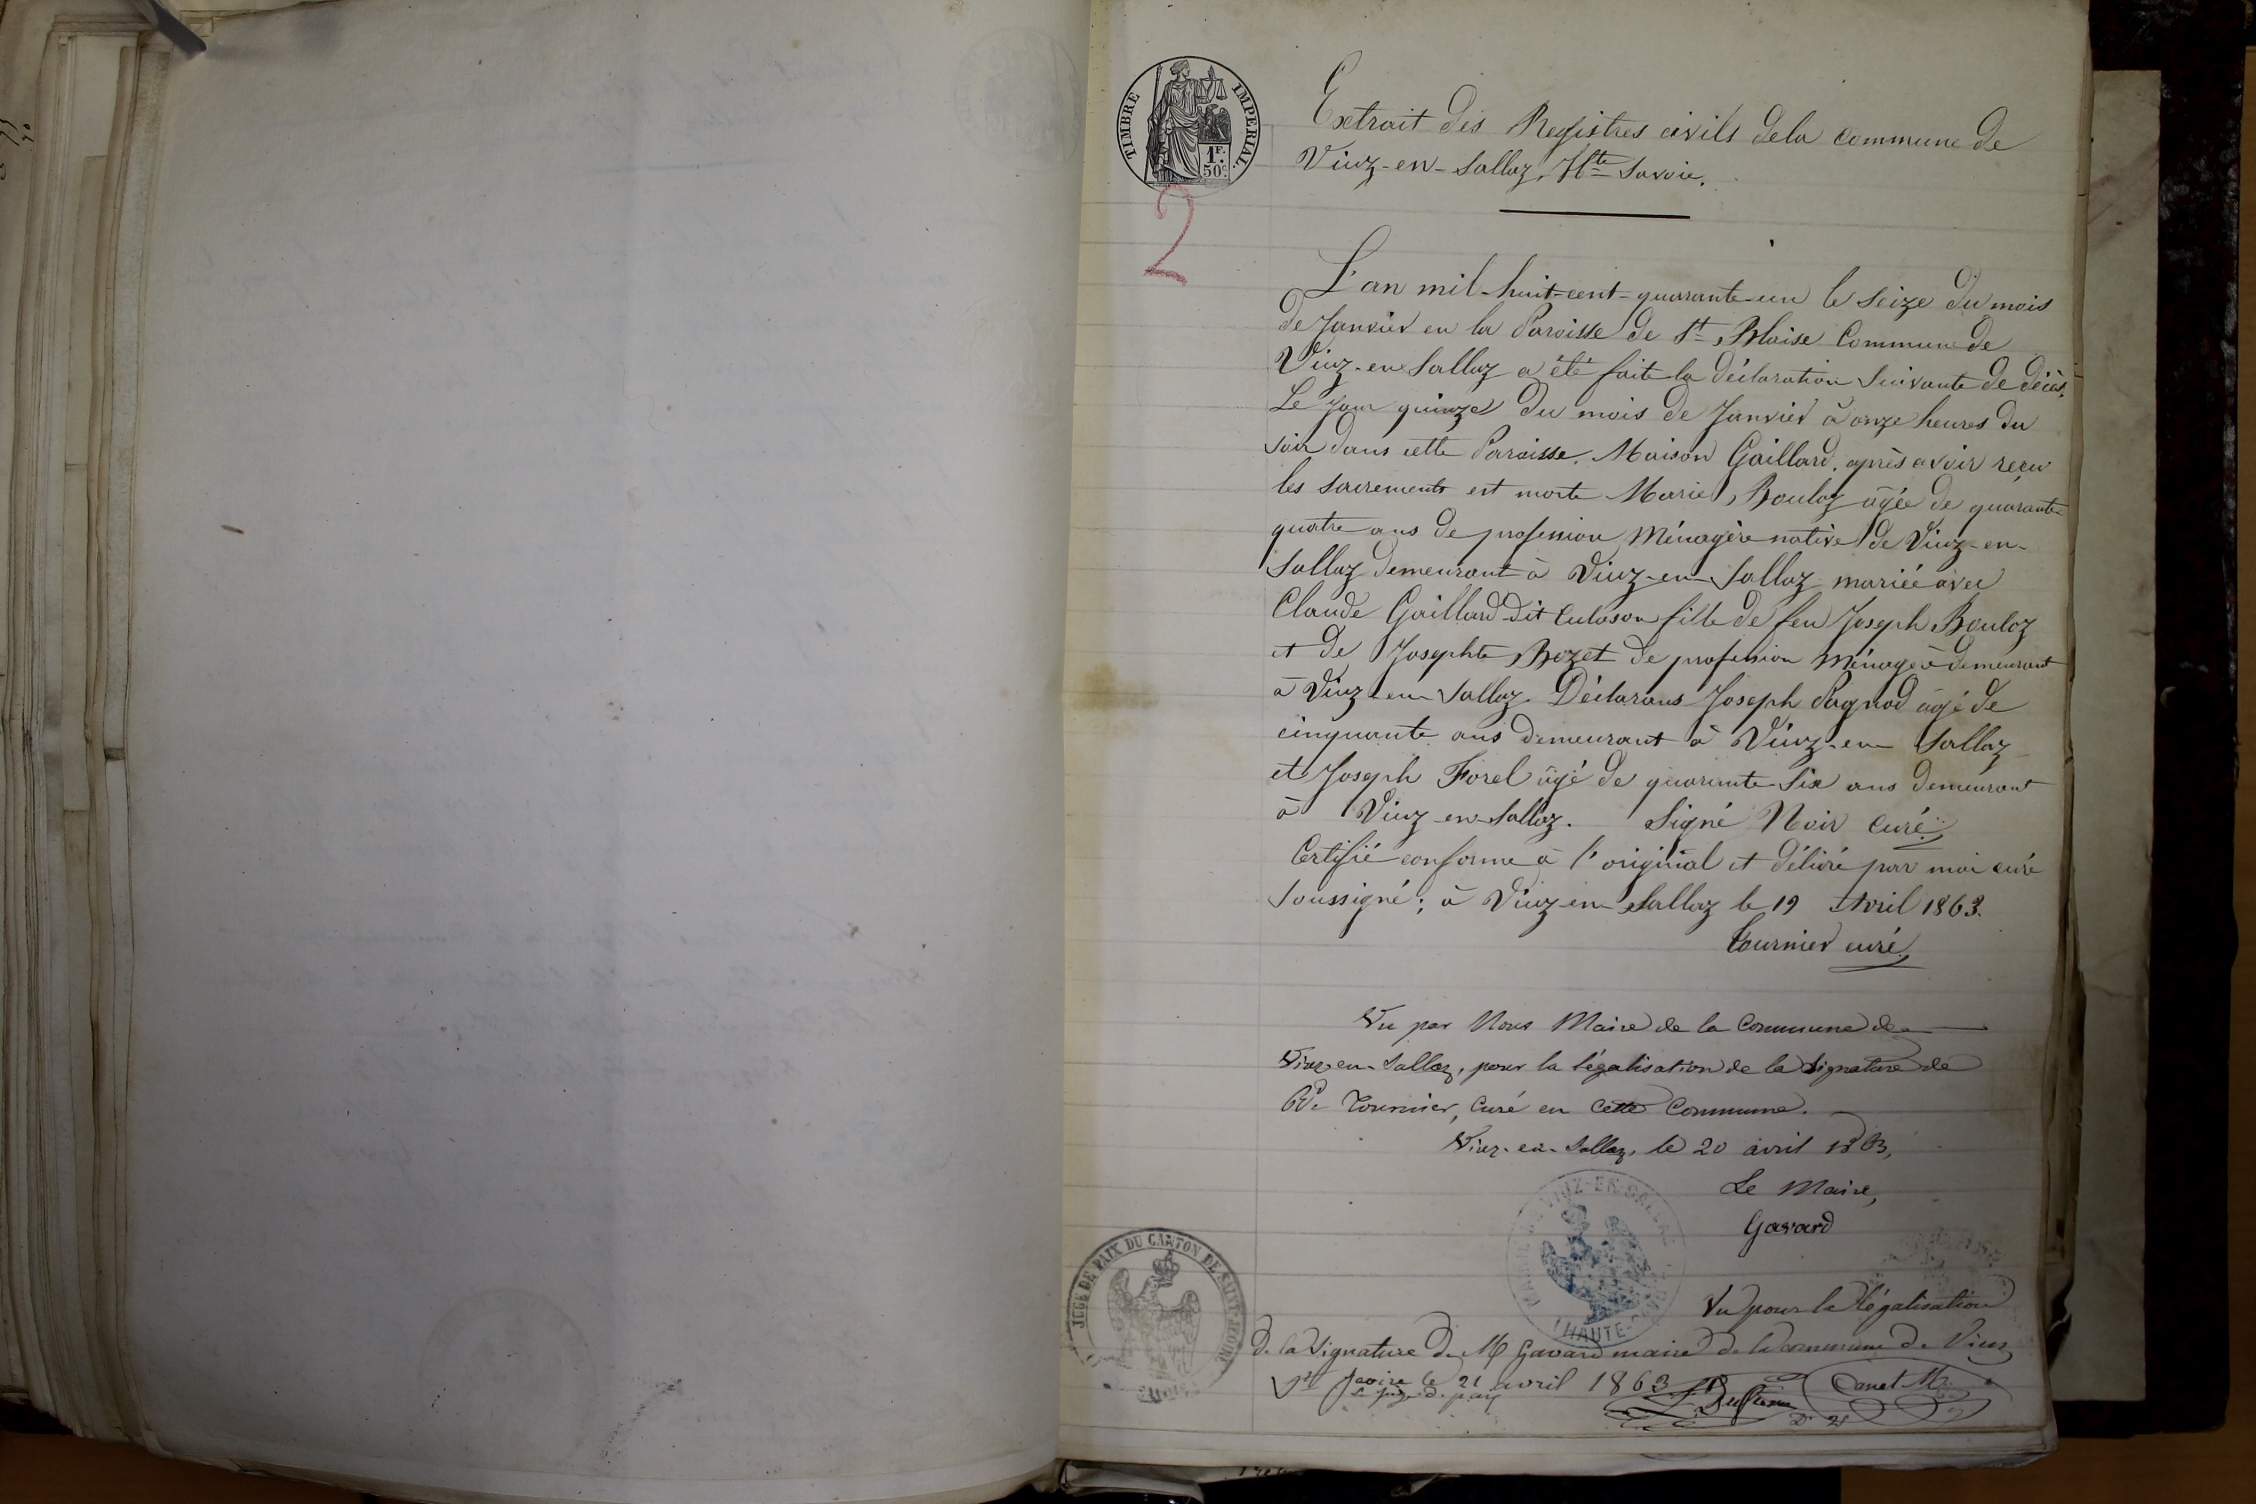 TIMBRE IMPERIAL.
1F.
50c
2
Extrait des Registres civils de la commune de
Viuz-en-Sallaz, Hte Savoie.
L'an mil-huit-cent-quarante-un le seize du mois
de Janvier en la Paroisse de St Blaise Commune de
Viuz-en Sallaz a été faite la déclaration suivante de décès,
Le jour quinze du mois de Janvier à onze heures du
soir dans cette Paroisse. Maison Gaillard, après avoir reçu
les sacrements est morte Marie Bouloz âgée de quarante
quatre ans de profession Ménagère native de Viuz-en-
Sallaz demeurant à Viuz-en-Sallaz mariée avec
Claude Gaillard dit Culason fille de feu Joseph Bouloz
et de Josephte Bozet de profession Ménagère demeurant
à Viuz-en-Sallaz. Déclarans Joseph Pagnod âgé de
cinquante ans demeurant à Viuz-en-Sallaz
et Joseph Forel âgé de quarante-six ans demeurant
à Viuz-en-Sallaz. Signé Noir curé
Certifié conforme à l'original et délivré par moi curé
soussigné; à Viuz-en-Sallaz le 19 Avril 1863.
Tournier curé
Vu par Nous Maire de la Commune de
Viuz-en-Sallaz, pour la légalisation de la signature de
Tournier, Curé en cette Commune.
Viuz-en-Sallaz, le 20 avril 1863,
Le Maire,
Gavard
VIUZ-EN-SALLAZ
HAUTE-
JUGE DE PAIX DU CANTON DE SAINT-JEOIRE
Vu pour la légalisation
de la signature de Mr Gavard maire de la commune de Viuz
St Jeoire le 21 avril 1863
Le juge de paix